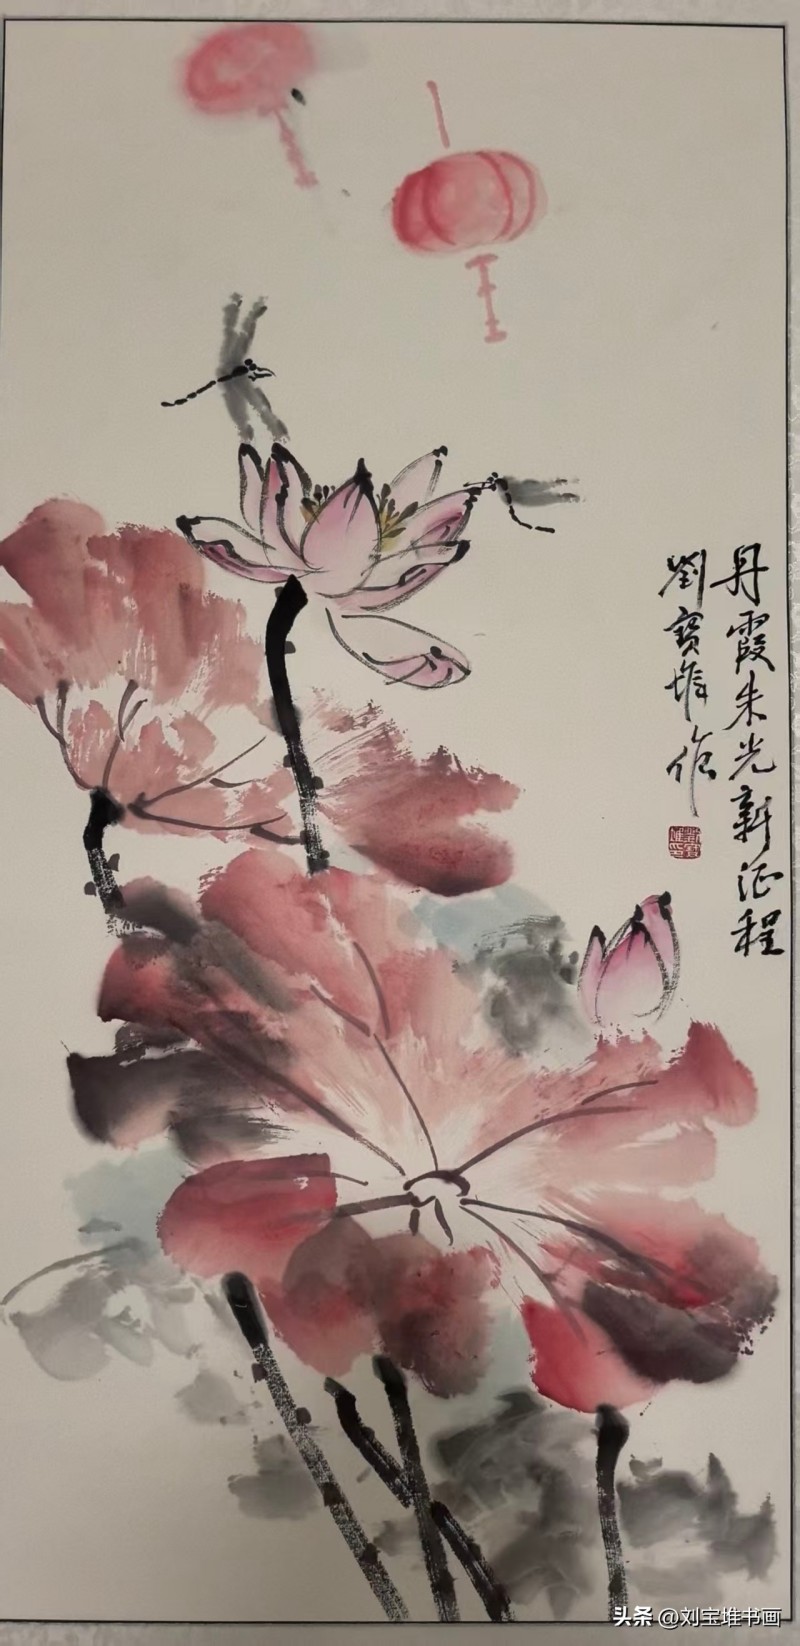 丹霞朱光新征程
劉寶堆作
头条 @刘宝堆书画